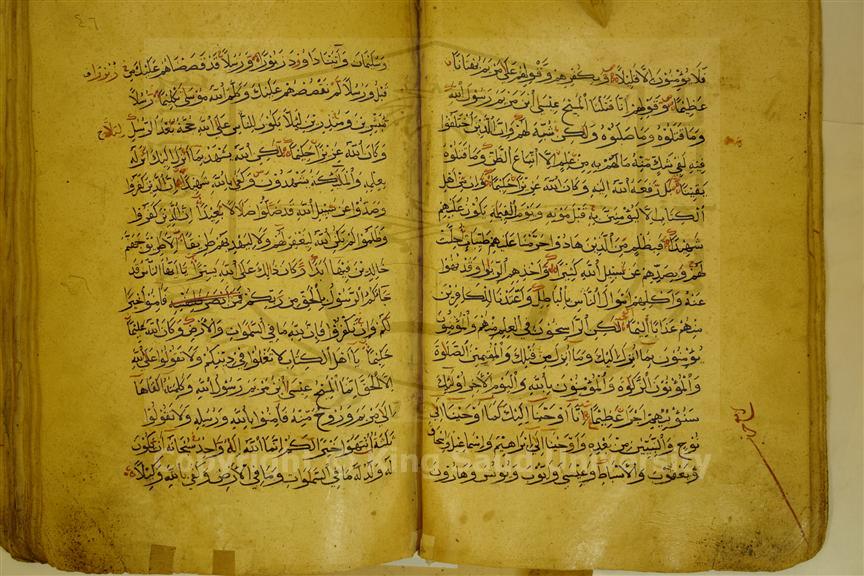 فلا يؤمنون الا قليلا وبكفرهم وقولهم على مريم بهتانا
عظيما وقولهم انا قتلنا المسيح عيسى ابن مريم رسول الله
وما قتلوه وما صلبوه ولكن شبه لهم وان الذين اختلفوا
فيه لفي شك منه ما لهم به من علم الا اتباع الظن وما قتلوه
يقينا بل رفعه الله اليه وكان الله عزيزا حكيما وان من اهل
الكتاب الا ليؤمنن به قبل موته ويوم القيمة يكون عليهم
شهيدا فبظلم من الذين هادوا حرمنا عليهم طيبات احلت
لهم وبصدهم عن سبيل الله كثيرا واخذهم الربوا وقد نهوا
عنه واكلهم اموال الناس بالباطل واعتدنا للكافرين
منهم عذابا اليما لكن الراسخون في العلم منهم والمؤمنون
يؤمنون بما انزل اليك وما انزل من قبلك والمقيمين الصلوة
والمؤتون الزكوة والمؤمنون بالله واليوم الاخر اولئك
سنؤتيهم اجرا عظيما انا اوحينا اليك كما اوحينا الى
نوح والنبيين من بعده واوحينا الى ابراهيم واسماعيل واسحاق
ويعقوب والاسباط وعيسى وايوب ويونس وهارون
٤٦
وسليمان وآتينا داود زبورا ورسلا قد قصصناهم عليك من
قبل ورسلا لم نقصصهم عليك وكلم الله موسى تكليما رسلا
مبشرين ومنذرين لئلا يكون للناس على الله حجة بعد الرسل
وكان الله عزيزا حكيما لكن الله يشهد بما انزل اليك انزله
بعلمه والملئكة يشهدون وكفى بالله شهيدا ان الذين كفروا
وصدوا عن سبيل الله قد ضلوا ضلالا بعيدا ان الذين كفروا
وظلموا لم يكن الله ليغفر لهم ولا ليهديهم طريقا الا طريق جهنم
خالدين فيها ابدا وكان ذلك على الله يسيرا يا ايها الناس قد
جاءكم الرسول بالحق من ربكم فامنوا خيرا
لكم وان تكفروا فان لله ما في السموات والارض وكان الله عليما
حكيما يا اهل الكتاب لا تغلوا في دينكم ولا تقولوا على الله
الا الحق انما المسيح عيسى ابن مريم رسول الله وكلمته القاها
الى مريم وروح منه فامنوا بالله ورسله ولا تقولوا
ثلثة انتهوا خيرا لكم انما الله اله واحد سبحانه ان يكون
له ولد له ما في السموات وما في الارض وكفى بالله وكيلا
Copyright © King Saud University